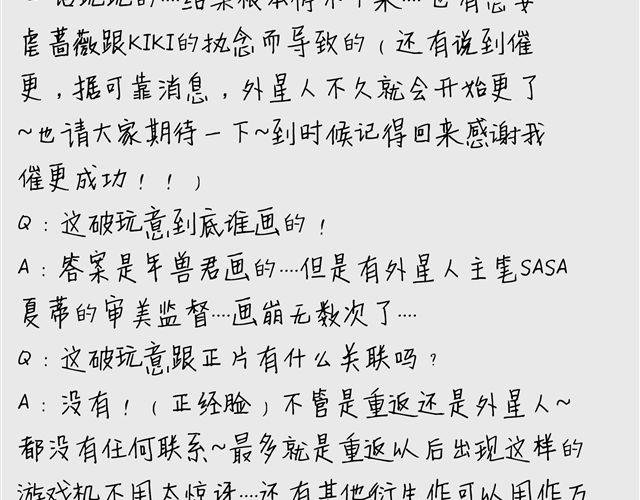 虐蔷薇跟KIKI的执念而导致的(还有说到催
更,据可靠消息,外星人不久就会开始更了
~也请大家期待一下~到时候记得回来感谢我
催更成功!!)
Q:这破玩意到底谁画的!
A:答案是年兽君画的....但是有外星人主笔SASA
夏蒂的审美监督....画崩无数次了....
Q:这破玩意跟正片有什么关联吗?
A:没有!(正经脸)不管是重返还是外星人~
都没有任何联系~最多就是重返以后出现这样的
游戏机不用太惊讶....还有其他衍生作可以用作万